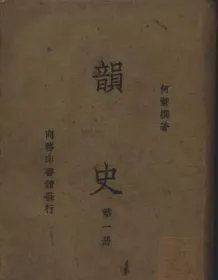 何萱撰著
韻史
第一册
商務印書館發行